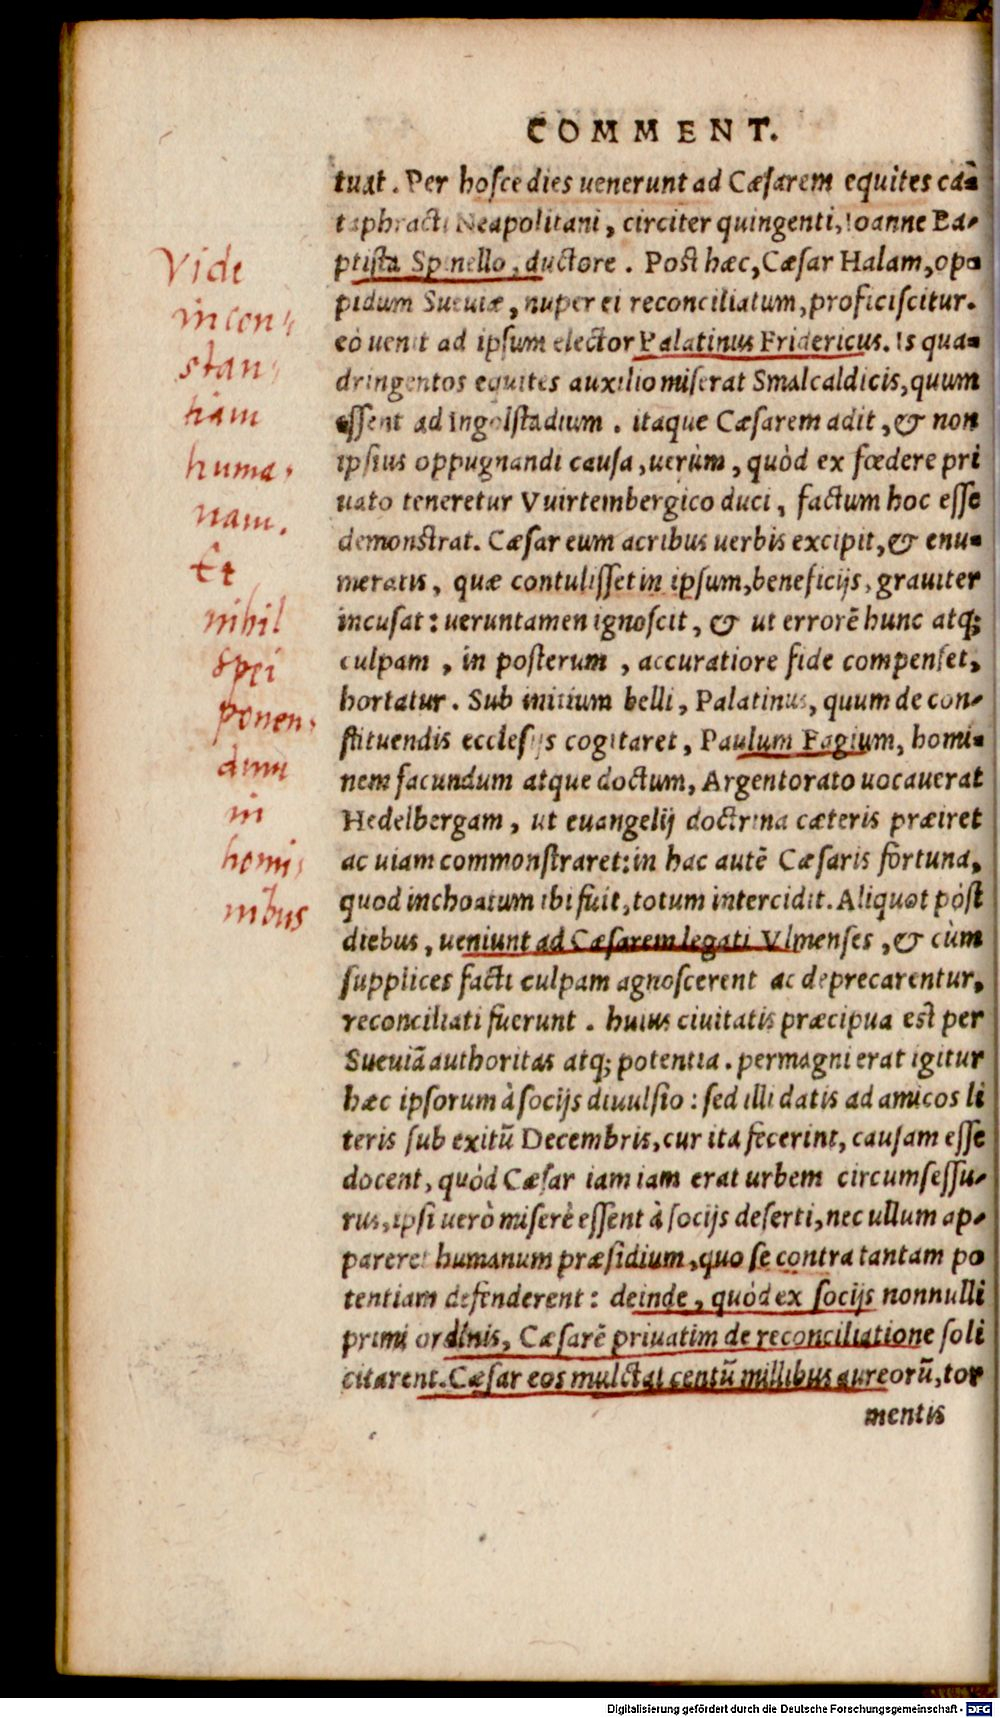 COMMENT.
tuat. Per hosce dies uenerunt ad Cæsarem equites cã-
taphracti Neapolitani, circiter quingenti, Ioanne Ba-
ptista Spinello, ductore. Post hæc, Cæsar Halam, op-
pidum Sueuiæ, nuper ei reconciliatum, proficiscitur.
eò uenit ad ipsum elector Palatinus Fridericus. Is qua-
dringentos equites auxilio miserat Smalcaldicis, quum
essent ad Ingolstadium. itaque Cæsarem adit, & non
ipsius oppugnandi causa, uerùm, quòd ex fœdere pri
uato teneretur Vuirtembergico duci, factum hoc esse
demonstrat. Cæsar eum acribus uerbis excipit, & enu-
meratis, quæ contulisset in ipsum, beneficijs, grauiter
incusat: ueruntamen ignoscit, & ut errorẽ hunc atq;
culpam, in posterum, accuratiore fide compenset,
hortatur. Sub initium belli, Palatinus, quum de con-
stituendis ecclesijs cogitaret, Paulum Fagium, homi-
nem facundum atque doctum, Argentorato uocauerat
Hedelbergam, ut euangelij doctrina cæteris præiret
ac uiam commonstraret: in hac autẽ Cæsaris fortuna,
quod inchoatum ibi fuit, totum intercidit. Aliquot pòst
diebus, ueniunt ad Cæsarem legati Vlmenses, & cùm
supplices facti culpam agnoscerent ac deprecarentur,
reconciliati fuerunt. huius ciuitatis præcipua est per
Sueuiã authoritas atq; potentia. permagni erat igitur
hæc ipsorum à socijs diuulsio: sed illi datis ad amicos li
teris sub exitũ Decembris, cur ita fecerint, causam esse
docent, quòd Cæsar iam iam erat urbem circumsessu-
rus, ipsi uerò miserè essent à socijs deserti, nec ullum ap-
pareret humanum præsidium, quo se contra tantam po
tentiam defenderent: deinde, quòd ex socijs nonnulli
primi ordinis, Cæsarẽ priuatim de reconciliatione soli
citarent. Cæsar eos mulctat centũ millibus aureorũ, tor
mentis
Vide
incon-
stan-
tiam
huma-
nam.
Et
nihil
spei
ponen-
dum
in
homi-
nibus
Digitalisierung gefördert durch die Deutsche Forschungsgemeinschaft - DFG